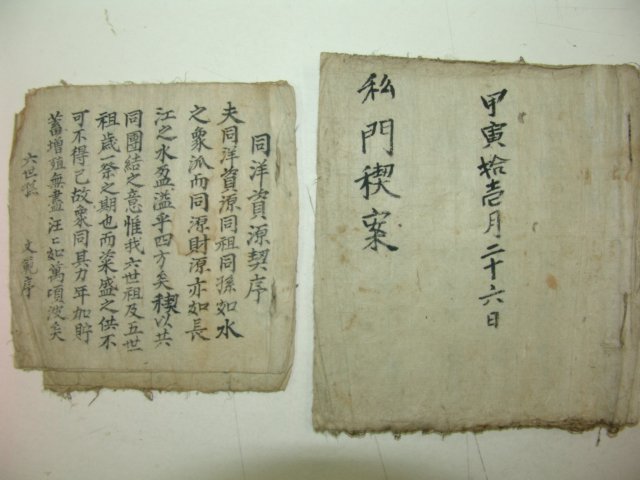 甲寅拾壹月二十六日
私門稧案
同洋資源契序
夫同洋資源同祖同孫如水
之衆派而同源財源亦如長
江之水盈溢乎四方矣稧以共
同團結之意惟我六世祖及五世
祖歲一祭之期也而粢盛之供不
可不得已故衆同其力年加貯
蓄增殖無盡汪〻如萬頃波矣
六世孫 文範序